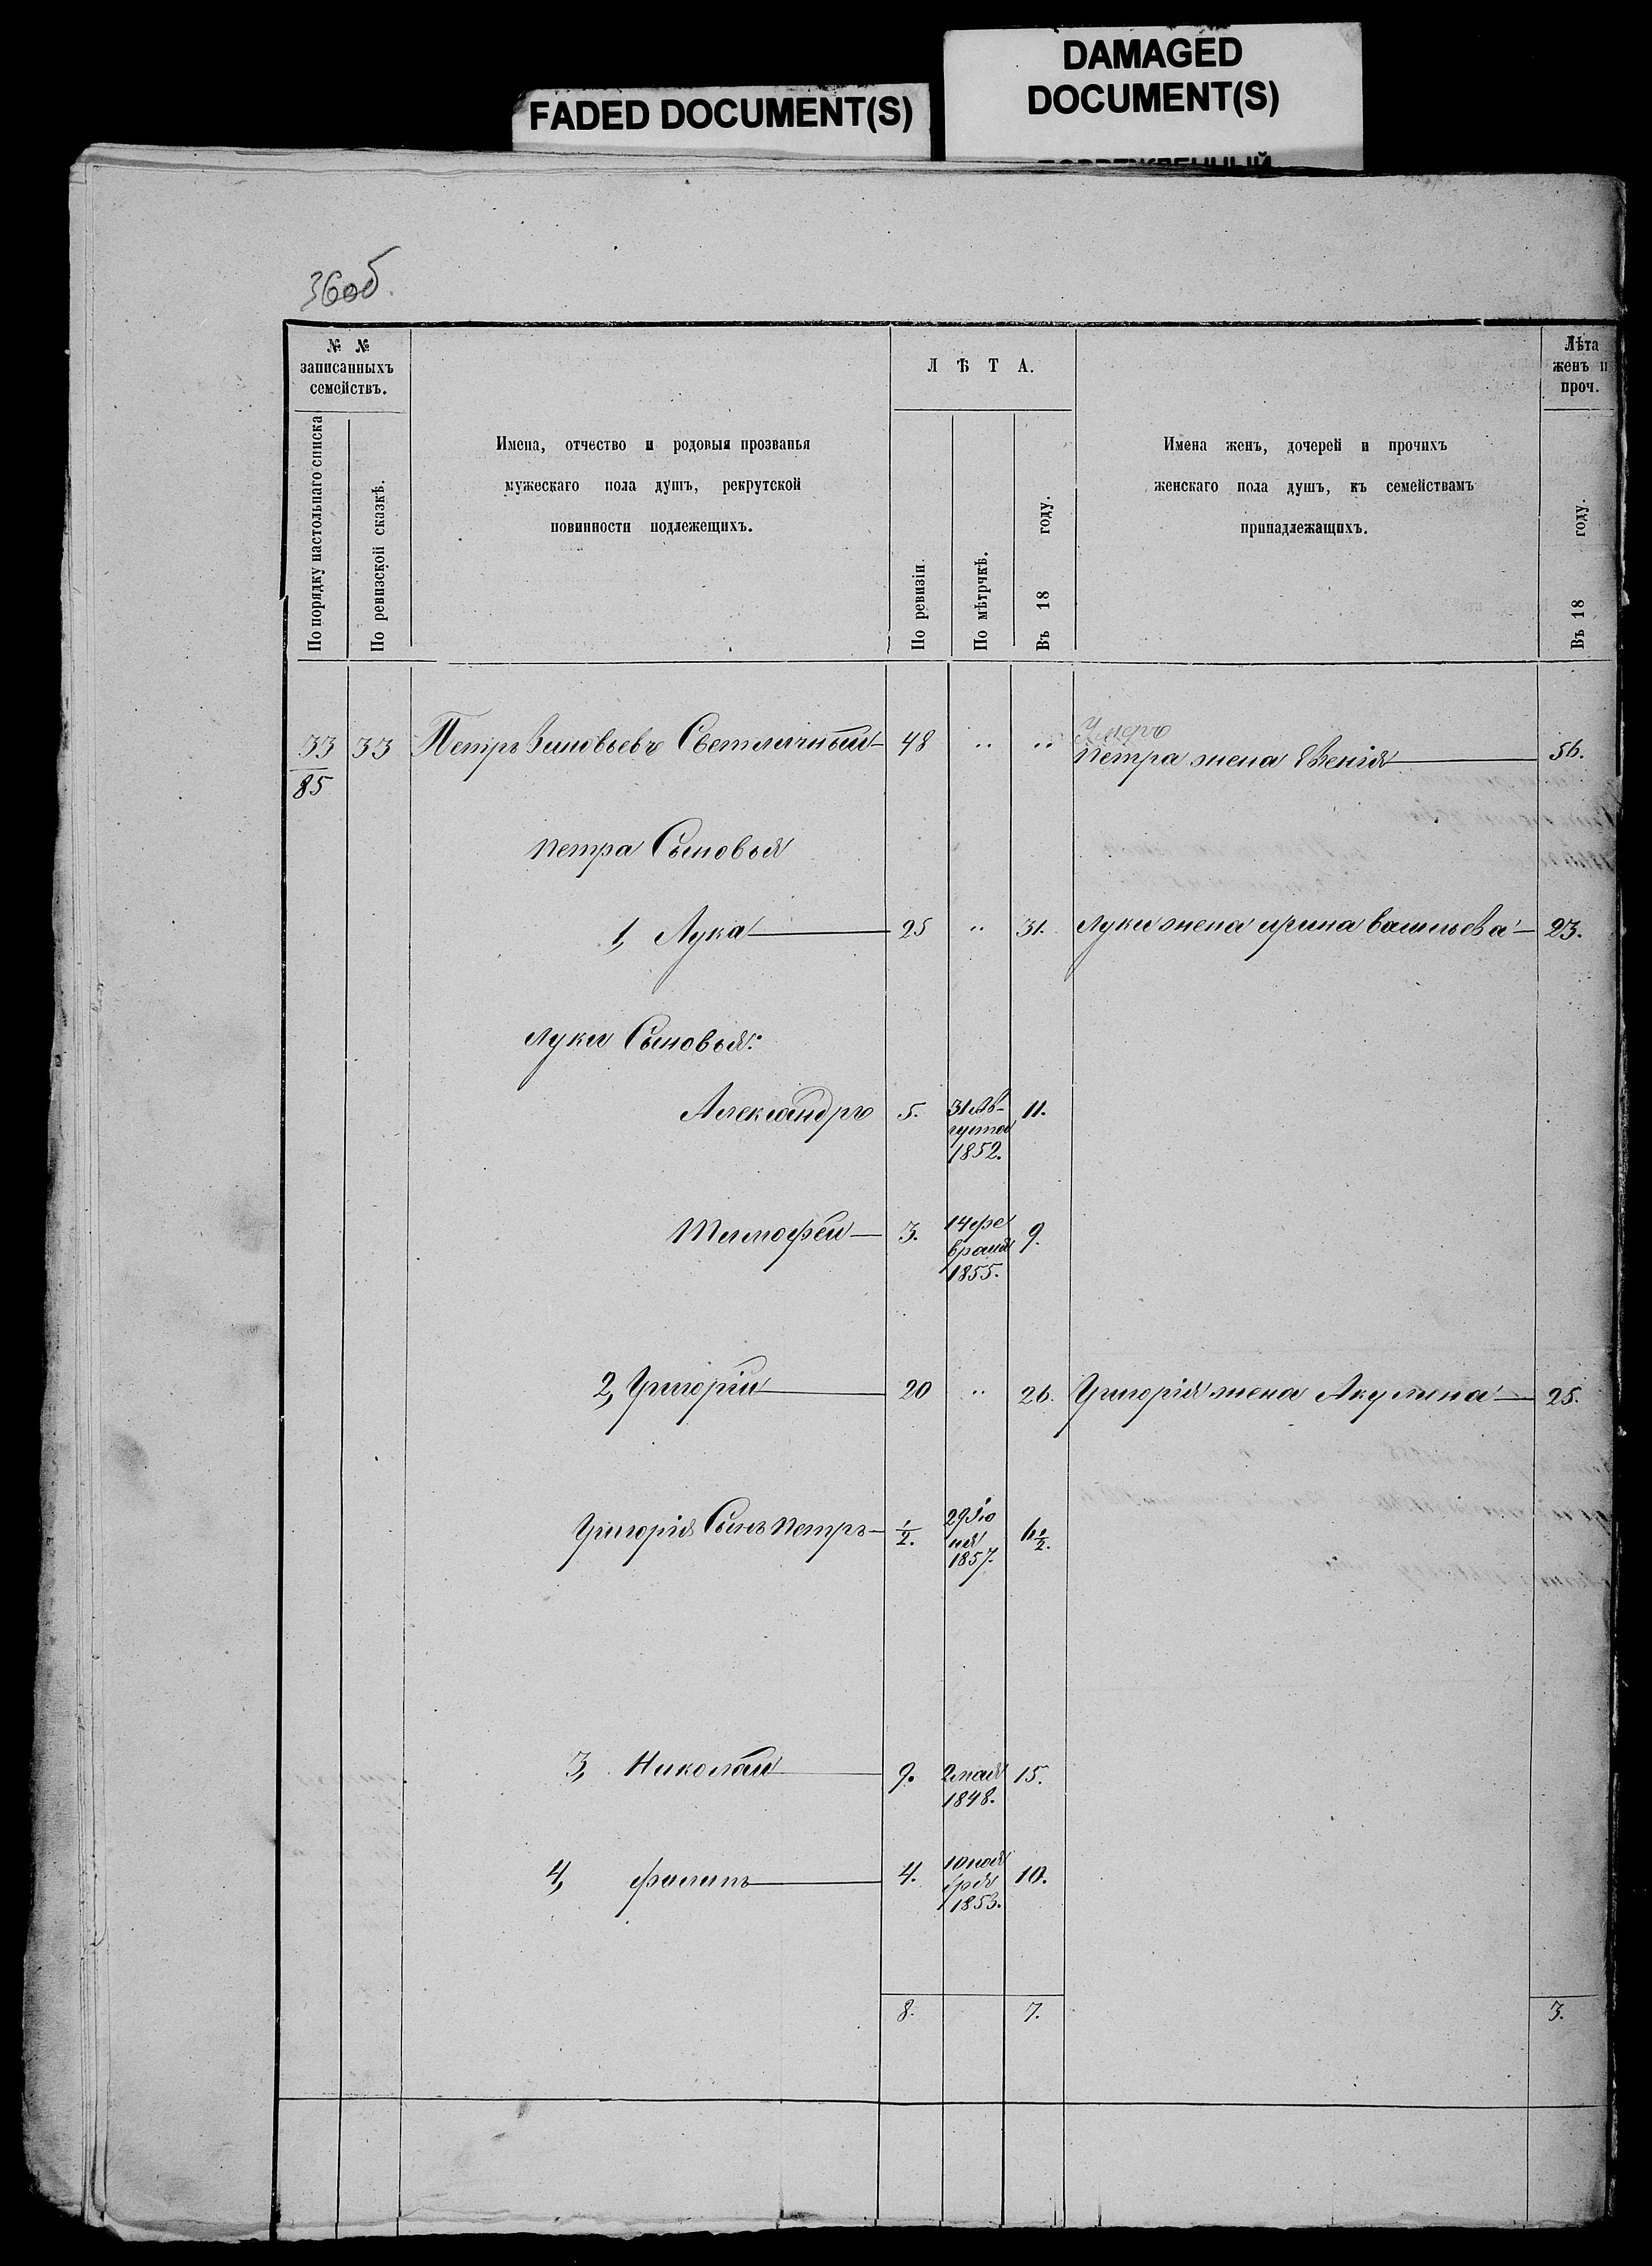 FADED DOCUMENT(S)
DAMAGED
DOCUMENT(S)
36об.
№ №
записанныхъ
семействъ.
По порядку настольнаго списка
По ревизской сказкѣ.
Имена, отчество и родовыя прозванья
мужескаго пола душъ, рекрутской
повинности подлежещихъ.
ЛѢТА.
По ревизіи.
По мѣтрчкѣ.
Въ 18 году.
Имена женъ, дочерей и прочихъ
женскаго пола душъ, къ семействамъ
принадлежащихъ.
Лѣта
женъ и
проч.
Въ 18 году.
33 33 Петръ Зиновьевъ Светличный 48 " " Петра жена 56.
85
Петра Сыновья
1, Лука 25 " 31. Луки жена ирина васильева 23.
Луки Сыновья:
Александръ 5. 31 Ав-
густа
1852. 11.
Тимофей 3. 14 фе
враля
1855. 9.
2, Григорій 20 " 26. Григорія жена Акулина 25.
Григорія Сынъ Петръ 1/2. 29 Iю
ня
1857. 6 1/2.
3, Николай 9. 2 мая
1848. 15.
4, филипъ 4. 10 ноя
бря
1853. 10.
8. 7. 3.